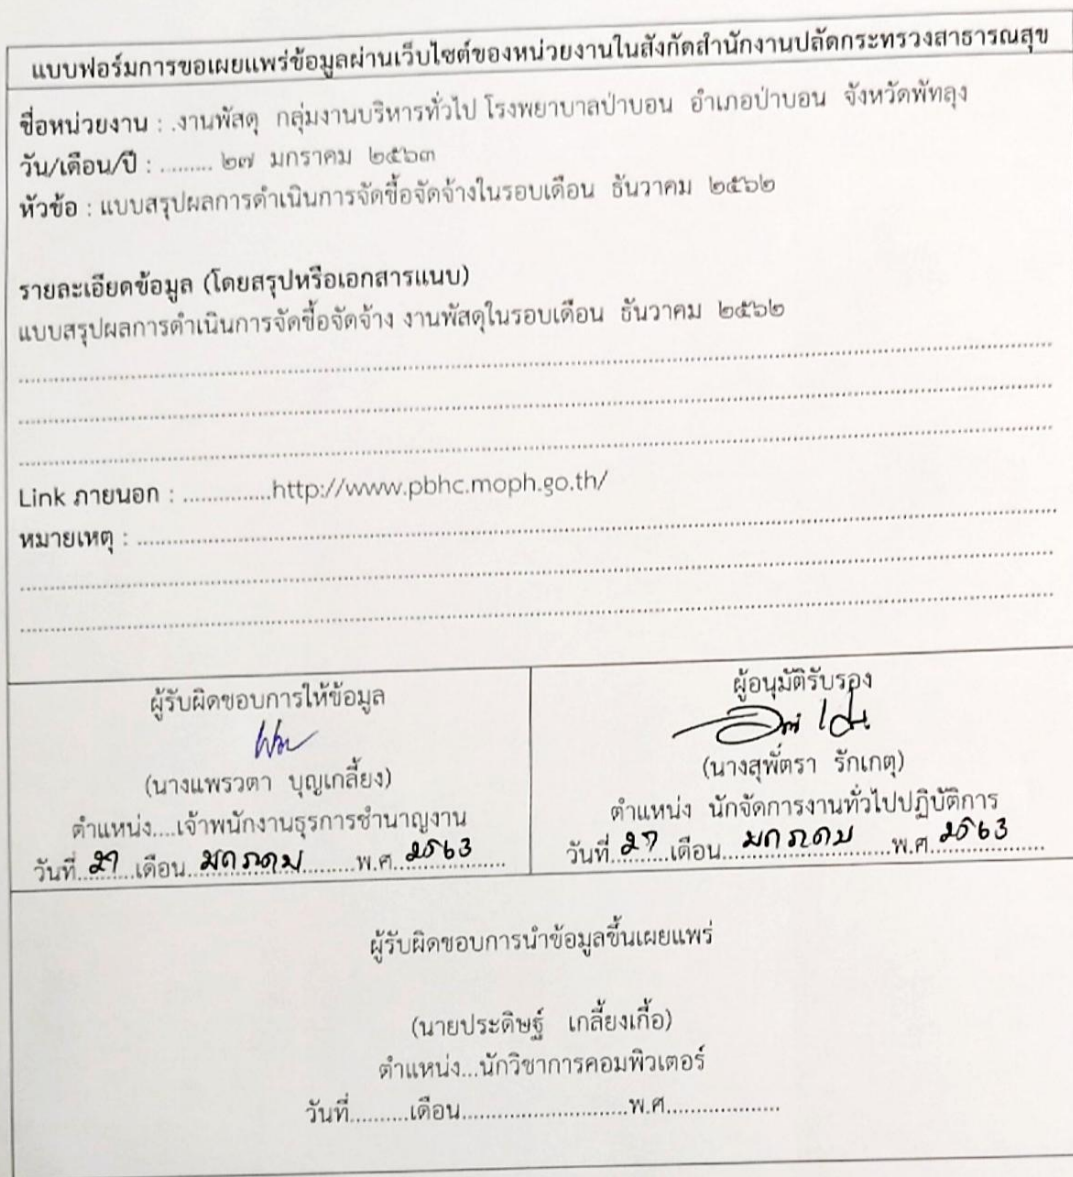 แบบฟอร์มการขอเผยแพร่ข้อมูลผ่านเว็บไซต์ของหน่วยงานในสังกัดสำนักงานปลัดกระทรวงสาธารณสุข
ชื่อหน่วยงาน : .งานพัสดุ กลุ่มงานบริหารทั่วไป โรงพยาบาลป่าบอน อำเภอป่าบอน จังหวัดพัทลุง
วัน/เดือน/ปี : ......... ๒๗ มกราคม ๒๕๖๓
หัวข้อ : แบบสรุปผลการดำเนินการจัดซื้อจัดจ้างในรอบเดือน ธันวาคม ๒๕๖๒
รายละเอียดข้อมูล (โดยสรุปหรือเอกสารแนบ)
แบบสรุปผลการดำเนินการจัดซื้อจัดจ้าง งานพัสดุในรอบเดือน ธันวาคม ๒๕๖๒
Link ภายนอก : ...............http://www.pbhc.moph.go.th/
หมายเหตุ : ...............
ผู้รับผิดชอบการให้ข้อมูล
(นางแพรวตา บุญเกลี้ยง)
ตำแหน่ง....เจ้าพนักงานธุรการชำนาญงาน
วันที่ 27 เดือน มกราคม พ.ศ. 2563
ผู้อนุมัติรับรอง
(นางสุพัตรา รักเกตุ)
ตำแหน่ง นักจัดการงานทั่วไปปฏิบัติการ
วันที่ 27 เดือน มกราคม พ.ศ. 2563
ผู้รับผิดชอบการนำข้อมูลขึ้นเผยแพร่
(นายประดิษฐ์ เกลี้ยงเกื้อ)
ตำแหน่ง...นักวิชาการคอมพิวเตอร์
วันที่..........เดือน............................พ.ศ...................